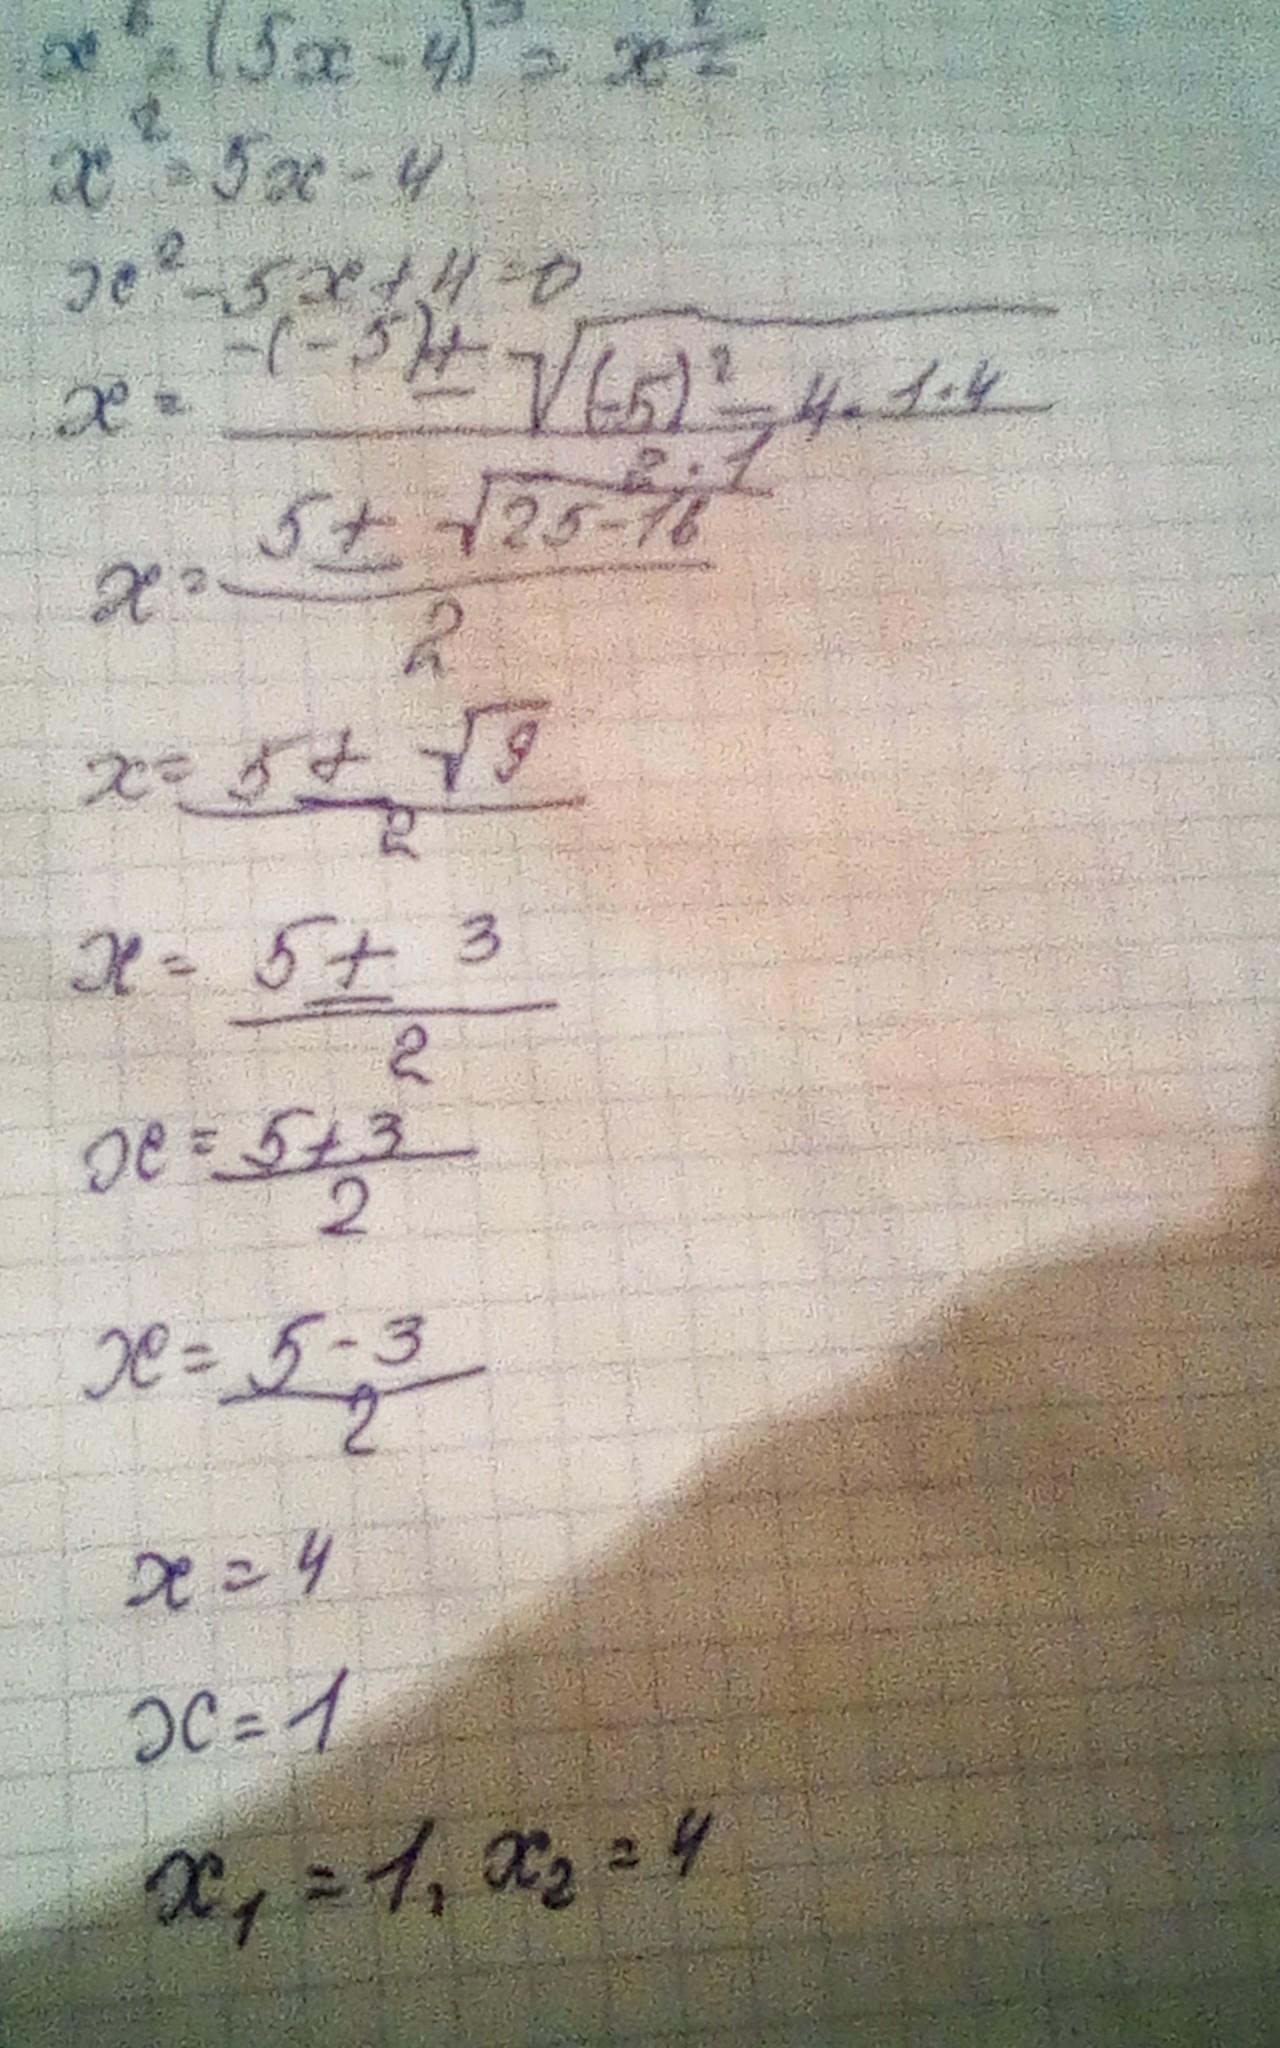 x⁶ = (5x - 4)³ = x²
x² = 5x - 4
x² - 5x + 4 = 0
x = (-(-5) ± √((-5)² - 4 · 1 · 4)) / (2 · 1)
x = (5 ± √(25 - 16)) / 2
x = (5 ± √9) / 2
x = (5 ± 3) / 2
x = (5 + 3) / 2
x = (5 - 3) / 2
x = 4
x = 1
x₁ = 1, x₂ = 4